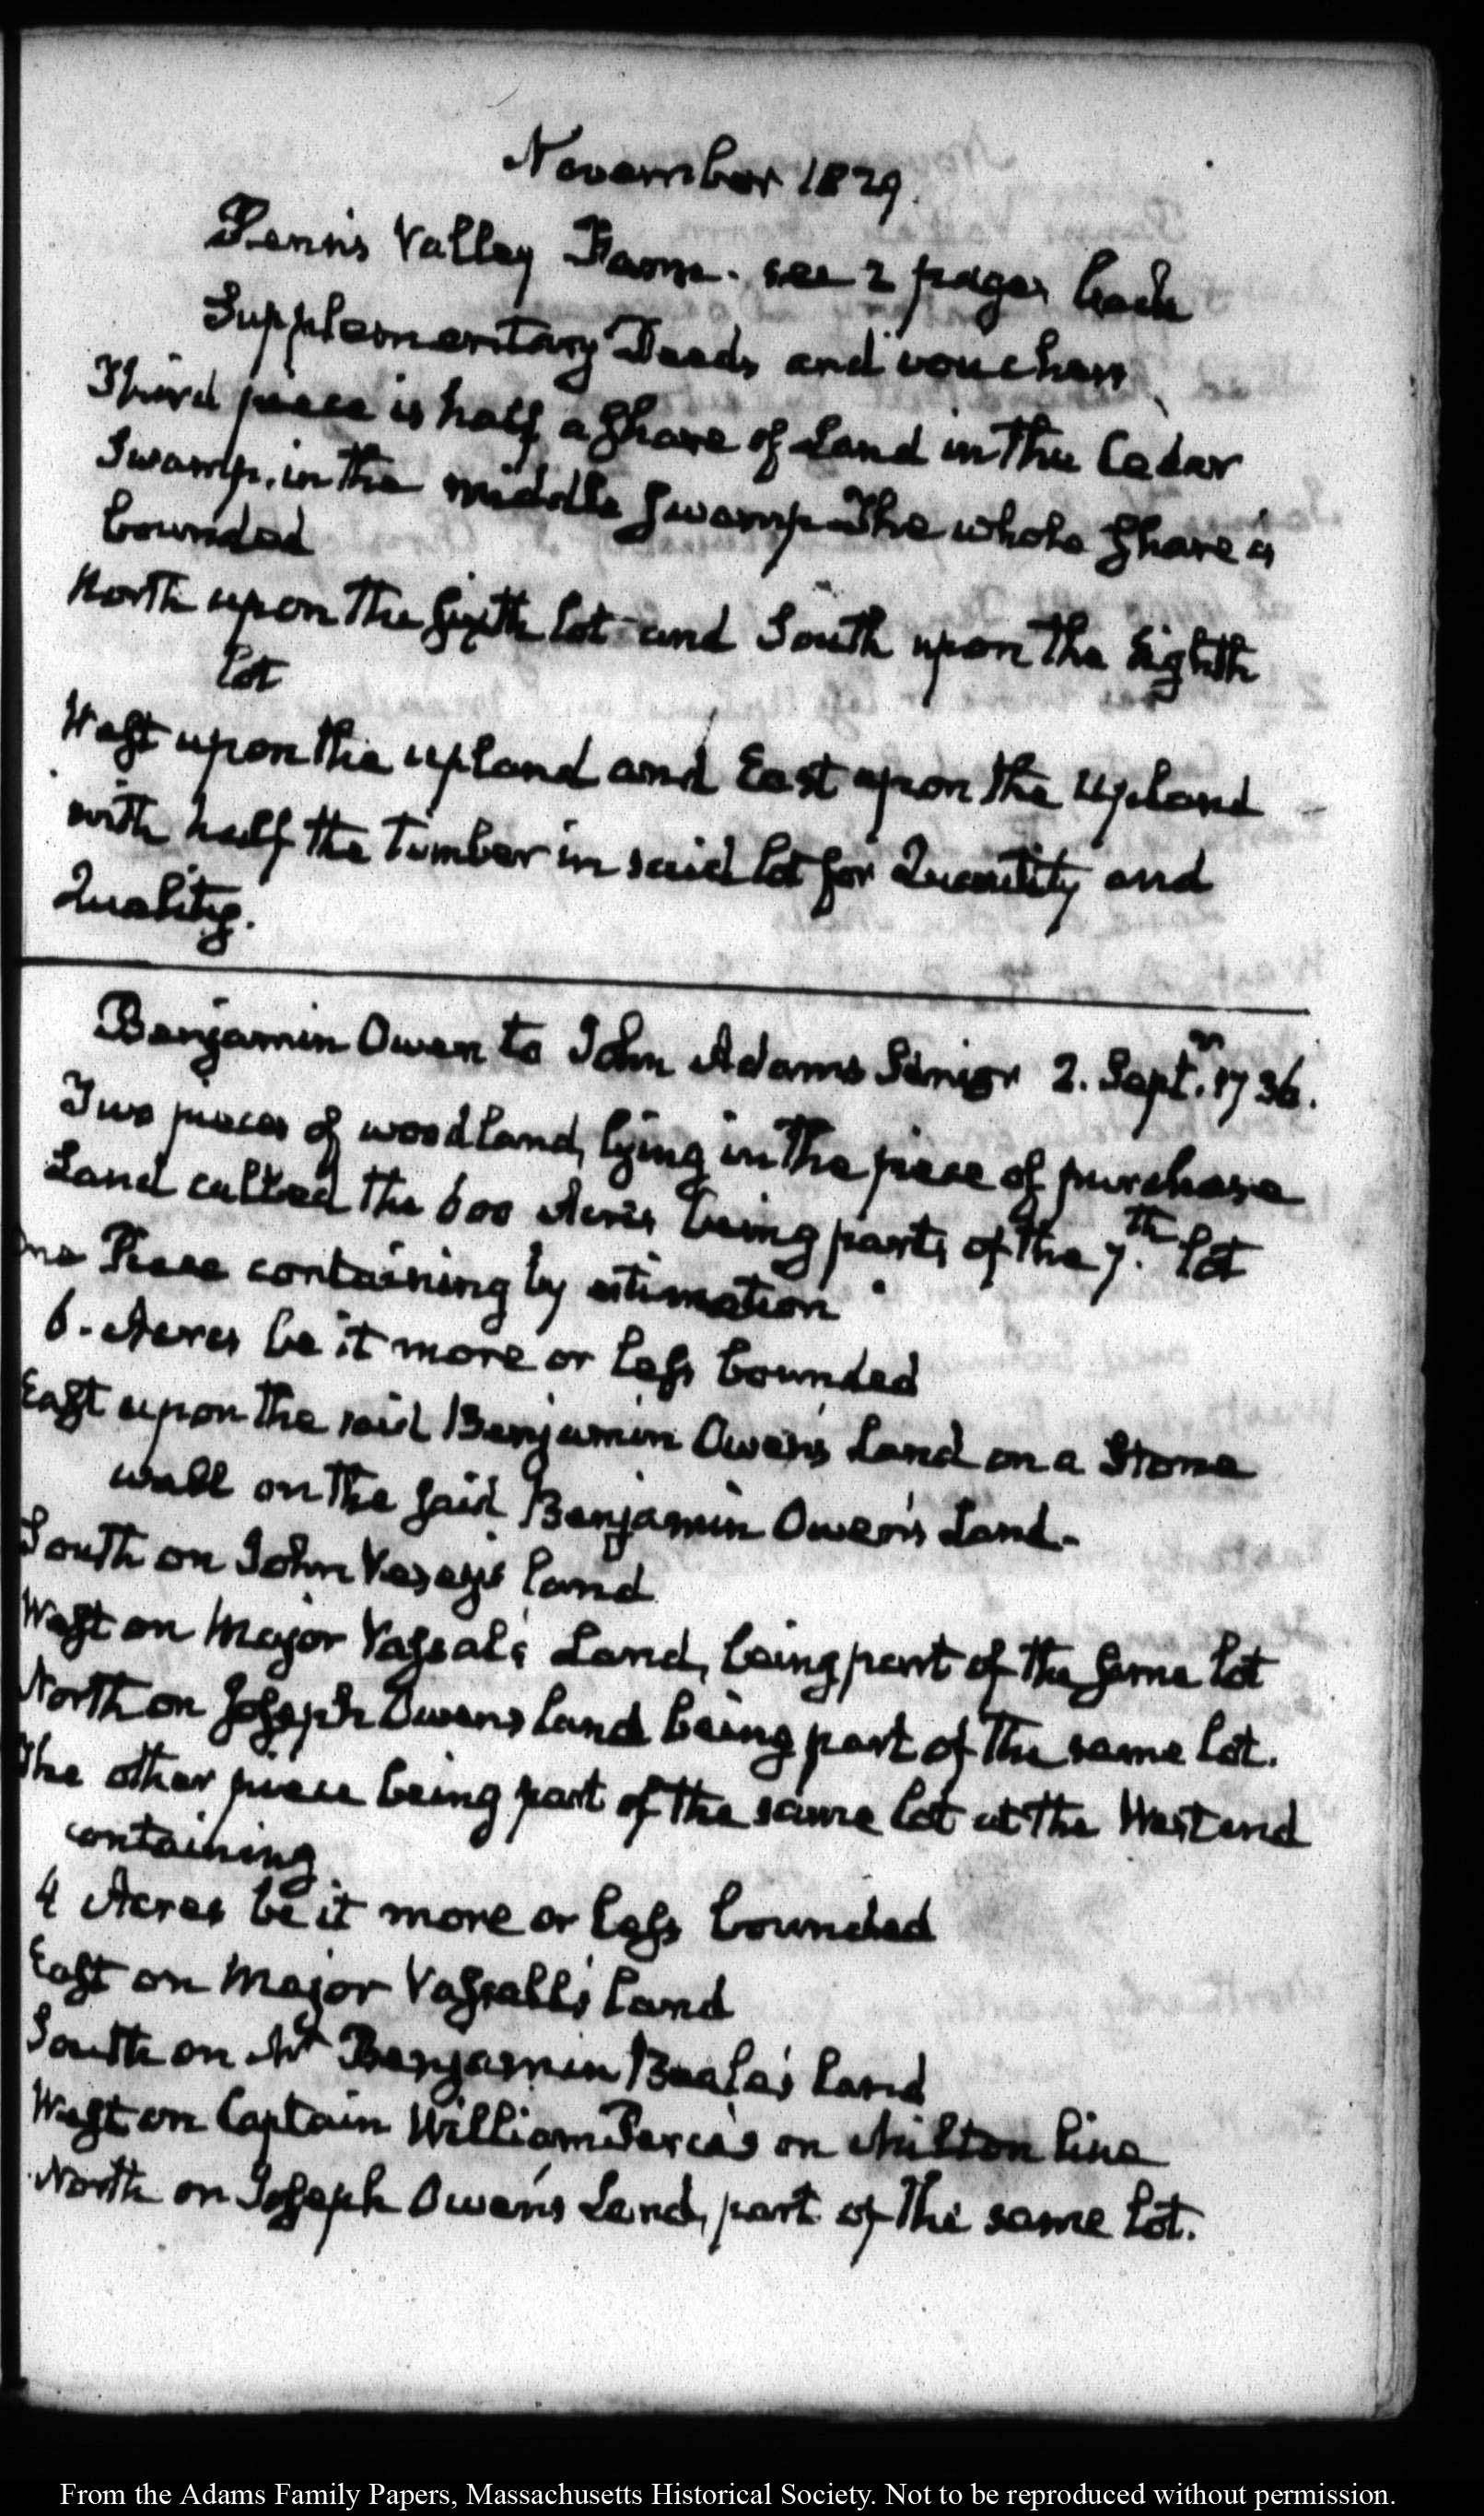 November 1829.
Penn's Valley Farm. see 2 pages back
Supplementary Deeds and vouchers
Third piece is half a share of Land in the Cedar
Swamp, in the middle swamp—The whole share is
bounded
North upon the sixth lot and South upon the Eighth
lot
West upon the upland and East upon the Upland
with half the Timber in said lot for Quantity and
Quality.
Benjamin Owen to John Adams Senior 2. Sept. 1736.
Two pieces of woodland, lying in the piece of purchase
Land called the 600 Acres being parts of the 7.th lot
One Piece containing by estimation
6. Acres be it more or less bounded
East upon the said Benjamin Owen's Land on a Stone
wall on the said Benjamin Owen's Land.
South on John Vesey's land
West on Major Vassal's Land, being part of the same lot
North on Joseph Owens land being part of the same lot.
The other piece being part of the same lot at the West end
containing
4 Acres be it more or less bounded
East on Major Vassall's land
South on Mr Benjamin Beale's land
West on Captain William on Milton line
North on Joseph Owen's Land, part of the same lot.
From the Adams Family Papers, Massachusetts Historical Society. Not to be reproduced without permission.